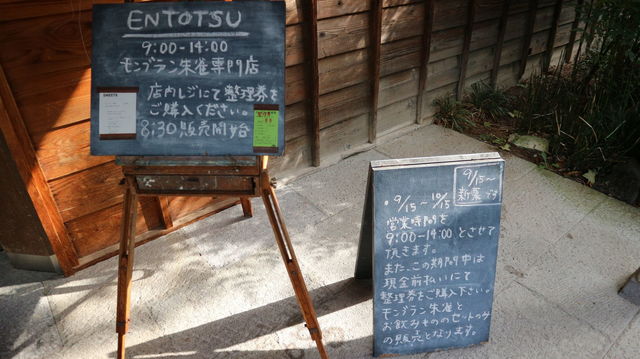 ENTOTSU
9:00-14:00
モンブラン朱雀専門店
店内レジにて整理券を
ご購入ください。
8:30 販売開始
SWEETS
9/15〜
新栗です
・9/15〜10/15
営業時間を
9:00-14:00 とさせて
頂きます。
また、この期間中は
現金前払いにて
整理券をご購入下さい。
モンブラン朱雀と
お飲みもののセットのみ
の販売となります。